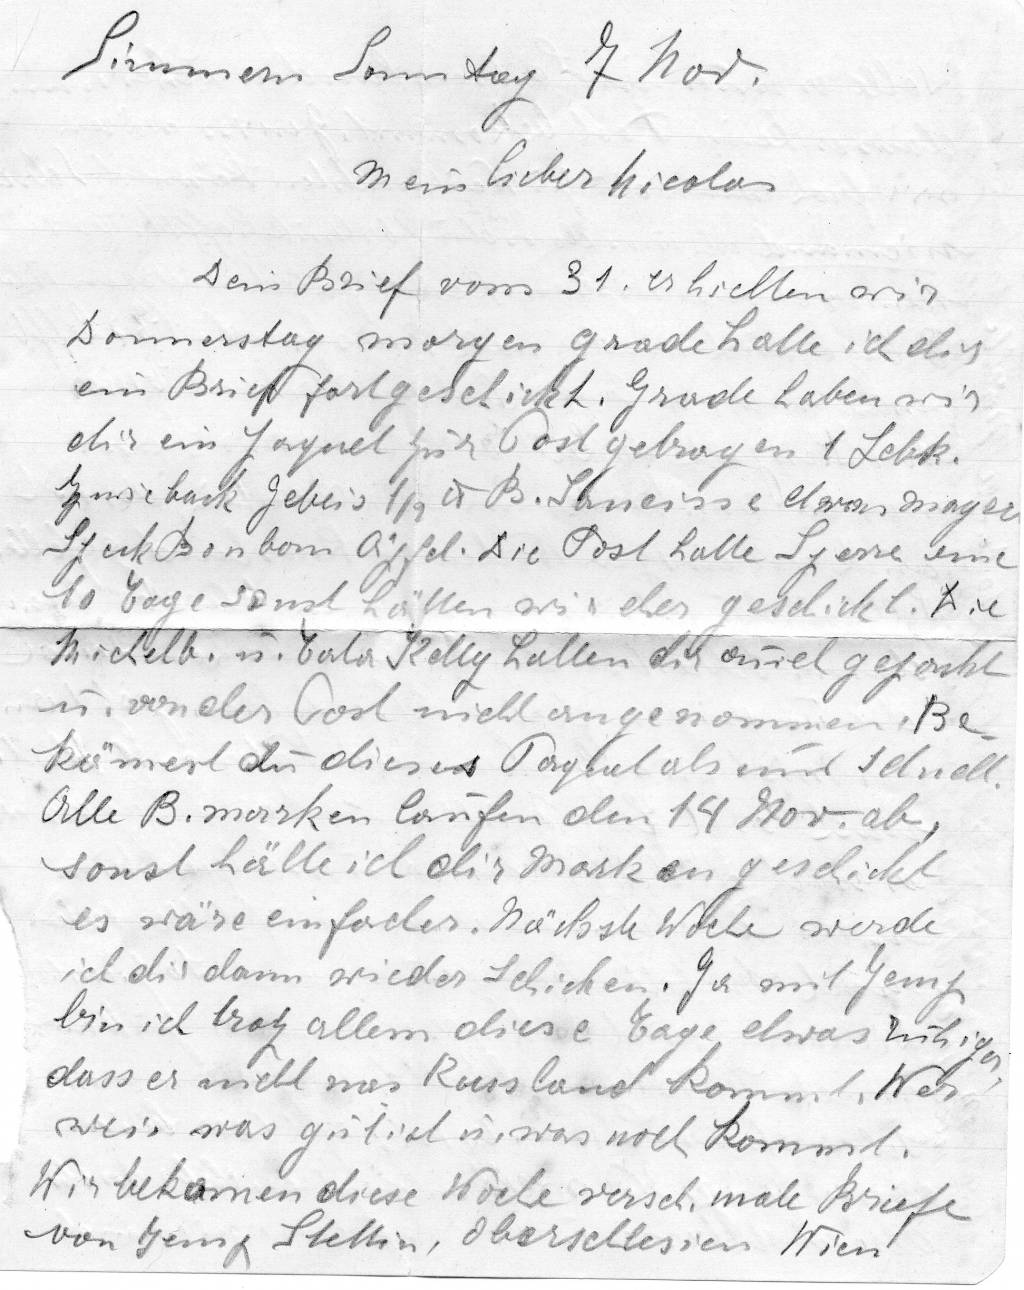 Simmern Sonntag 7 Nov.
Mein lieber Nicolas
Dein Brief vom 31. erhielten wir
Donnerstag morgen grade hatte ich dir
ein Brief fortgeschickt. Grade haben wir
dir ein Paquet zur Post getragen 1 Lebk.
Zwieback Gebeis 1/2 B. etwas mager
Speck Bonbom Äpfel. Die Post hatte Sperre eine
10 Tage sonst hätten wir eher geschickt. Die
Michelb. u. Tata Ketty hatten dir auch gepackt
u. von der Post nicht angenommen. Be-
kömerst du dieses Paquet als und schnell.
Alle B. marken laufen den 14 Nov. ab,
sonst hätte ich dir Marken geschickt
es wäre einfacher. Nächste Woche werde
ich dir dann wieder schicken. Ja mit Jemp
bin ich trotz allem diese Tage etwas ruhiger,
dass er nicht nas Russland kommt. Wer
weis was gut ist u. was noch kommt.
Wir bekamen diese Woche versch. male Briefe
von Jemp Stettin, Oberschlesien Wien